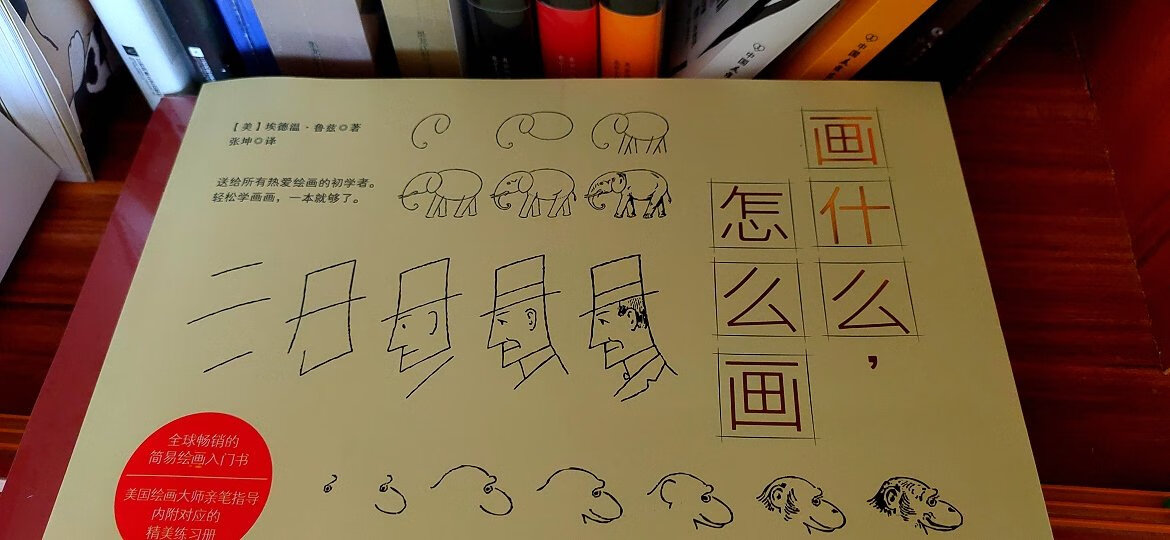 [美]埃德温·鲁兹◎著
张坤◎译
送给所有热爱绘画的初学者。
轻松学画画，一本就够了。
画什么，
怎么画
全球畅销的
简易绘画入门书
美国绘画大师亲笔指导
内附对应的
精美练习册